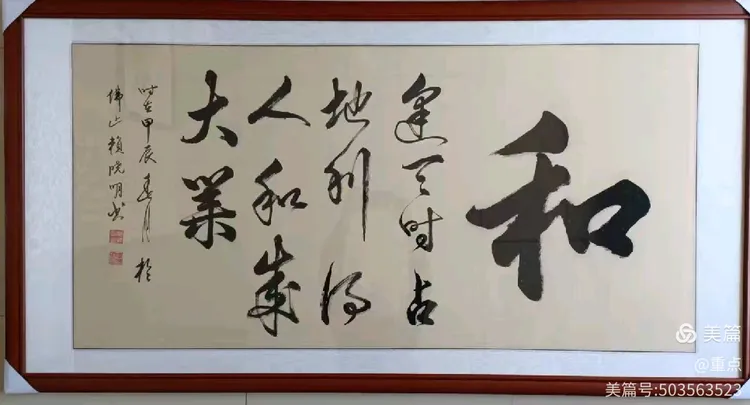 和
逢天时占
地利得
人和成
大业
时在甲辰春月于
佛山赖晓明书
美篇
@重点
美篇号:503563523